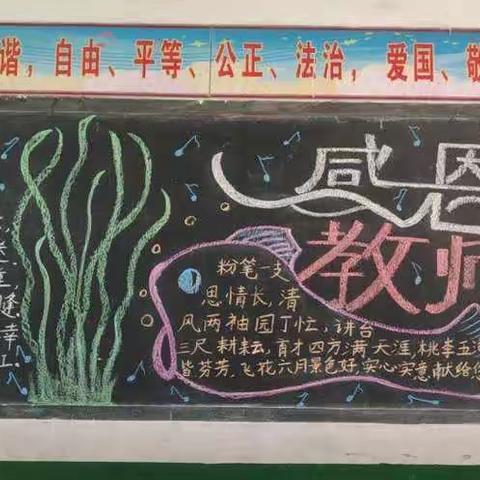 谐，自由、平等、公正、法治，爱国、敬
感恩
教师
粉笔一支
思情长，清
风两袖园丁忙，讲台
三尺耕耘，育才四方满天涯，桃李五
皆芬芳，飞花六月景色好，实心实意献给您